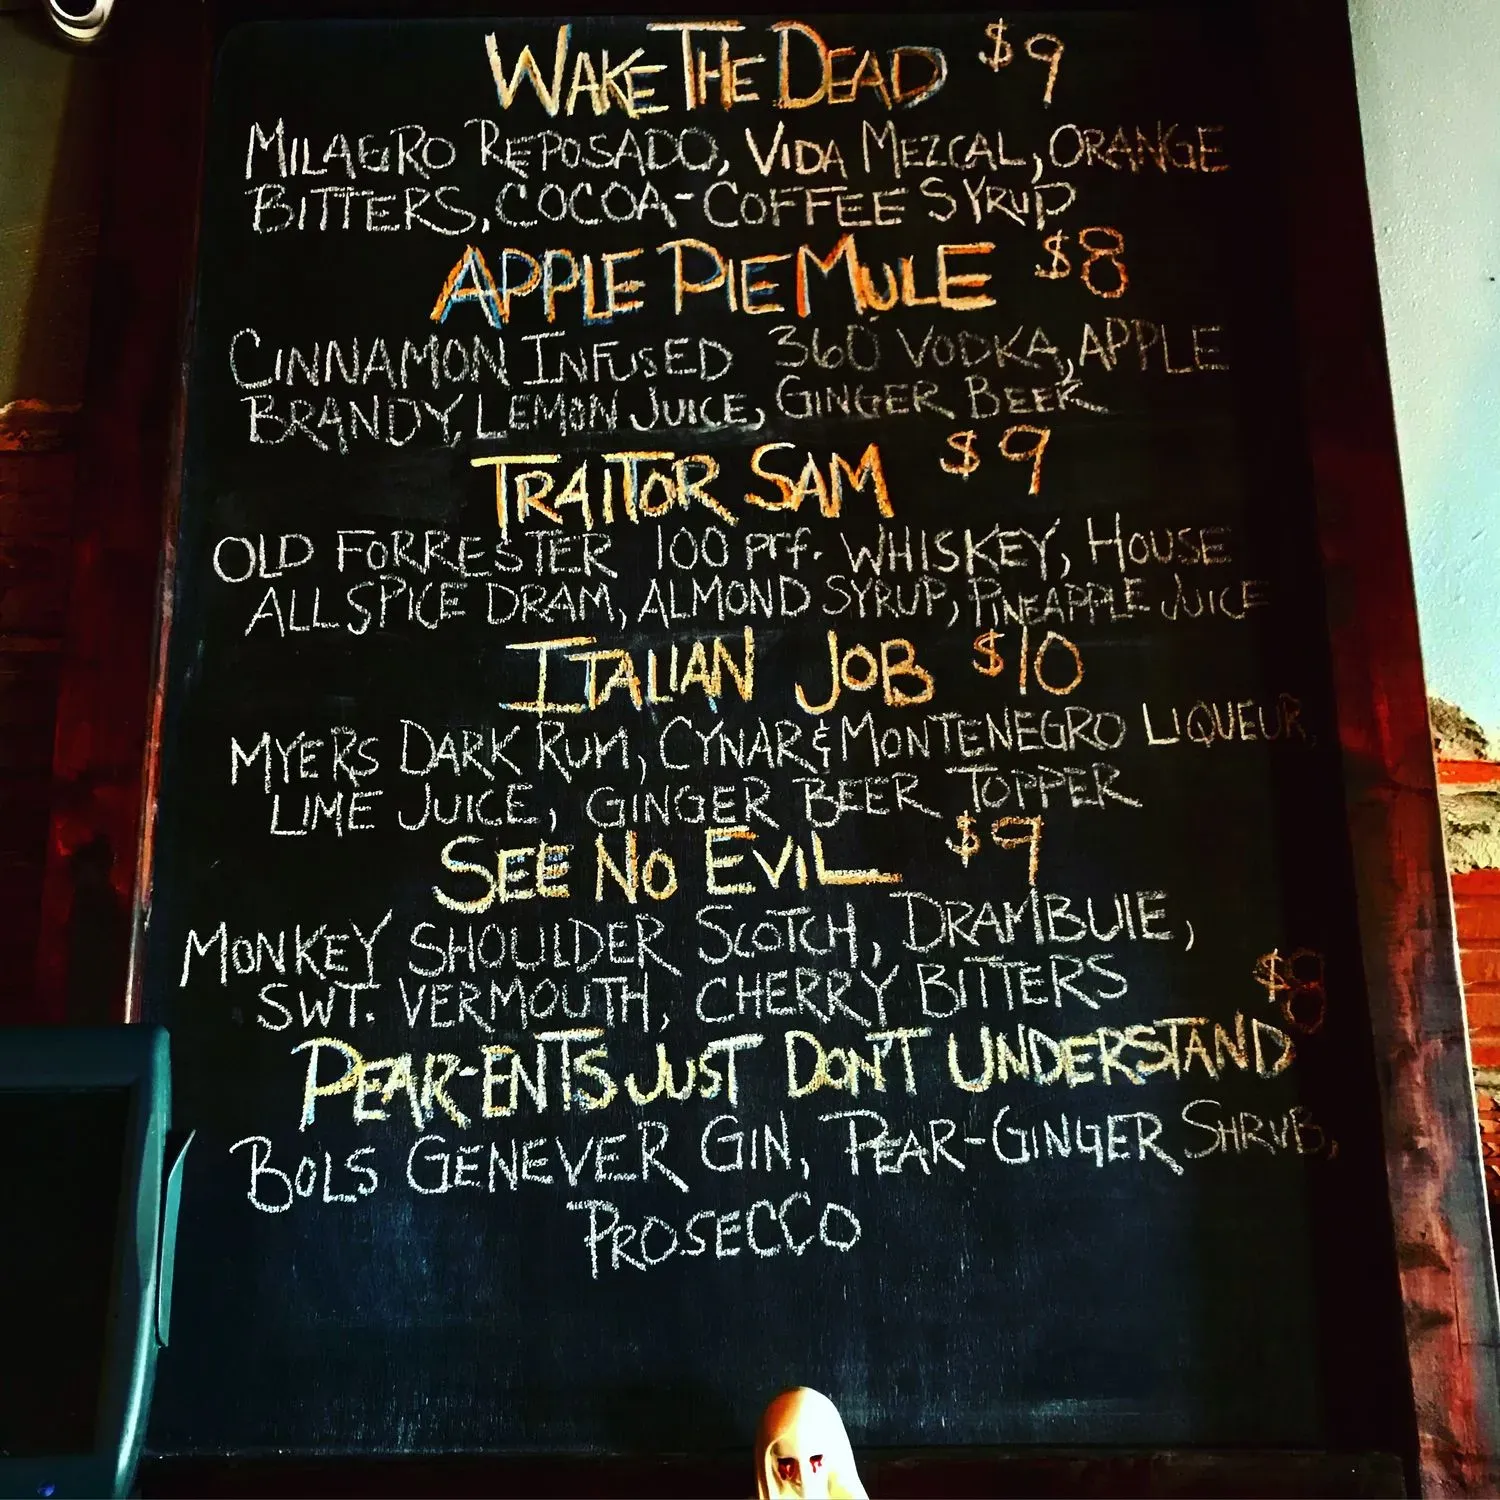 WAKE THE DEAD $9
MILAGRO REPOSADO, VIDA MEZCAL, ORANGE
BITTERS, COCOA-COFFEE SYRUP
APPLE PIE MULE $8
CINNAMON INFUSED 360 VODKA, APPLE
BRANDY, LEMON JUICE, GINGER BEER
TRAITOR SAM $9
OLD FORRESTER 100 prf. WHISKEY, HOUSE
ALLSPICE DRAM, ALMOND SYRUP, PINEAPPLE JUICE
ITALIAN JOB $10
MYERS DARK RUM, CYNAR & MONTENEGRO LIQUEUR,
LIME JUICE, GINGER BEER TOPPER
SEE NO EVIL $9
MONKEY SHOULDER SCOTCH, DRAMBUIE,
SWT. VERMOUTH, CHERRY BITTERS
PEAR-ENTS JUST DON'T UNDERSTAND $8
BOLS GENEVER GIN, PEAR-GINGER SHRUB,
PROSECCO